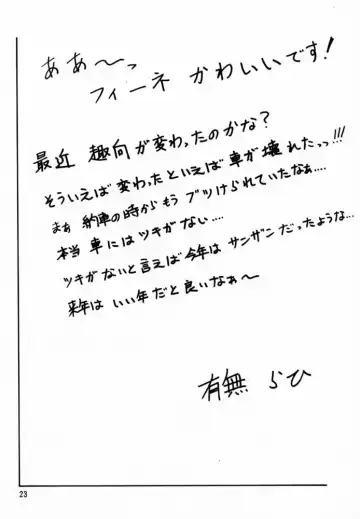 ああ〜っ
フィーネ かわいいです!
最近 趣向が変わったのかな?
そういえば変わったといえば車が壊れたっっ!!!
まぁ 納車の時からもう ブツけられていたなぁ....
本当 車にはツキがない....
ツキがないと言えば今年は サンザンだったような...
来年は いい年だと良いなぁ〜
有無 らひ
23